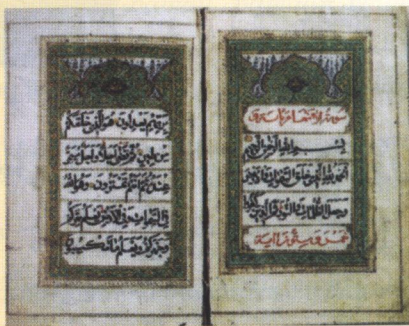 سورة الانعام
بسم الله الرحمن الرحيم
الحمد لله الذي خلق السموات والارض
وجعل الظلمات والنور ثم الذين كفروا
خمس وستون اية
بربهم يعدلون هو الذي خلقكم
من طين ثم قضى اجلا واجل مسمى
عنده ثم انتم تمترون وهو الله
في السموات وفي الارض يعلم سركم
وجهركم ويعلم ما تكسبون